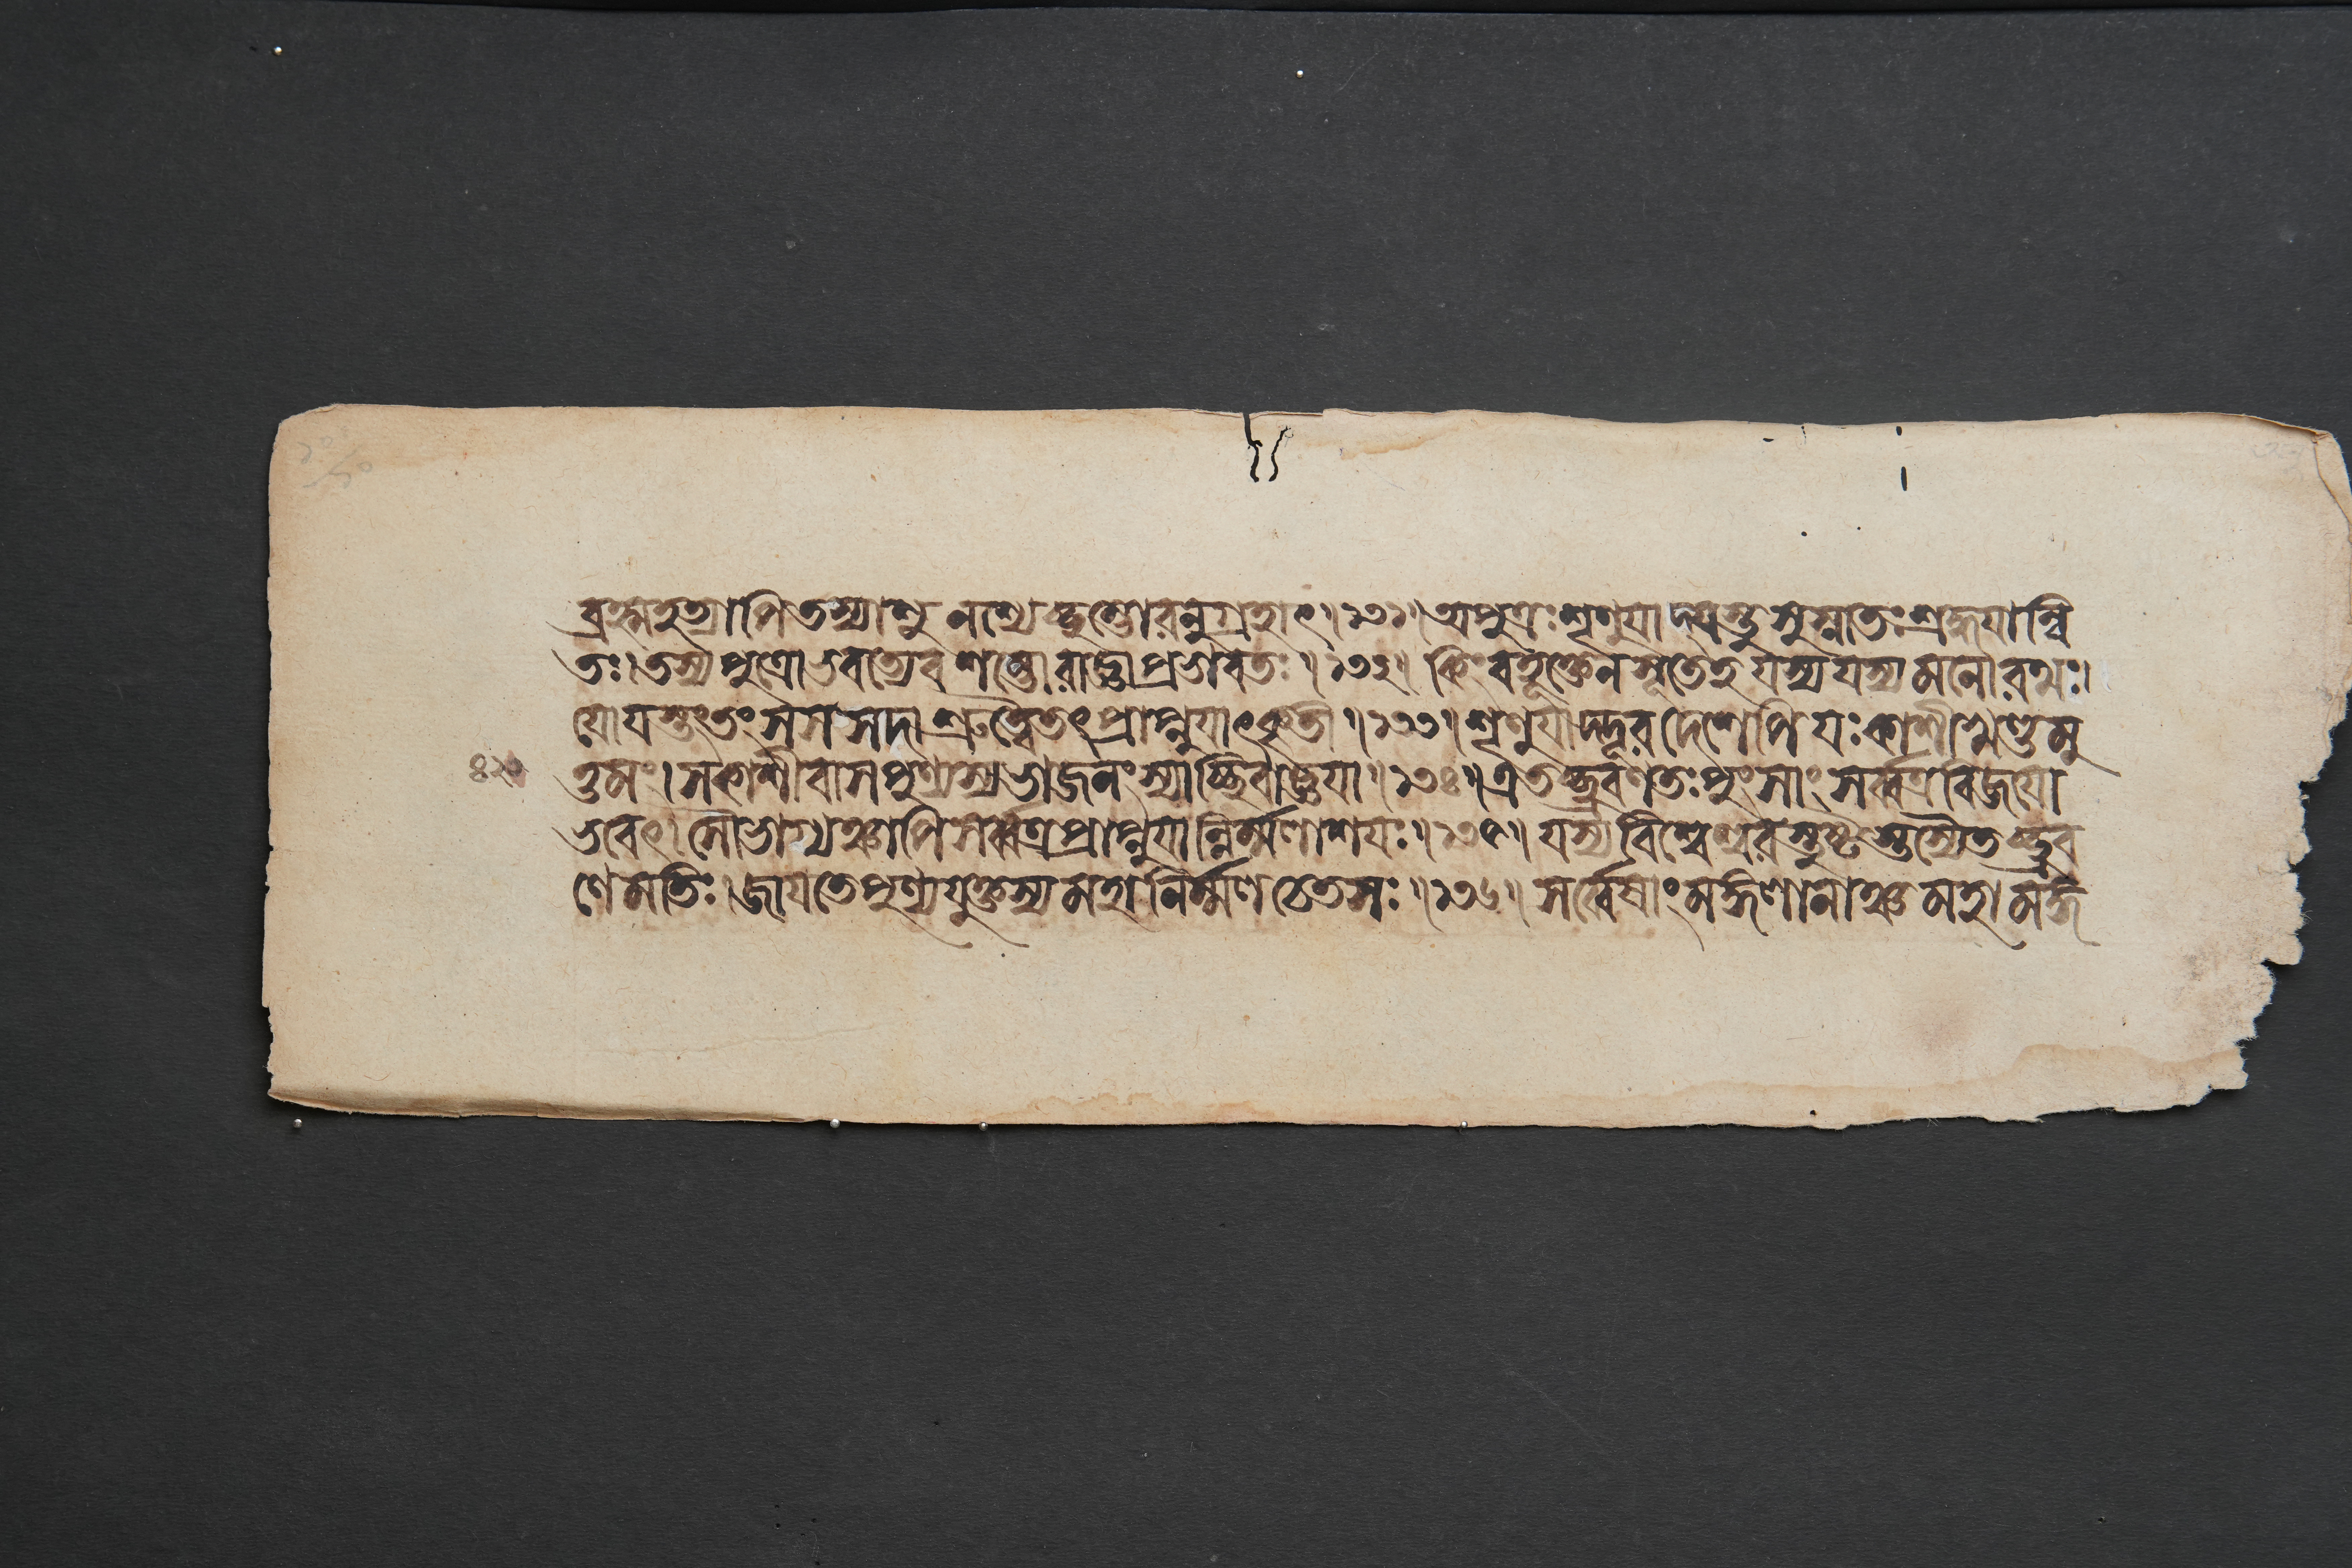 ব্রহ্মহত্যাপি তস্যাশু নশ্যেচ্ছম্ভোরনুগ্রহাৎ॥১৩১॥ অপুত্রঃ শৃণুয়াদ্যস্তু সুস্নাতঃ শ্রদ্ধয়ান্বি
তঃ। তস্য পুত্রো ভবত্যেব শম্ভোরাজ্ঞাপ্রভাবতঃ॥১৩২॥ কিং বহূক্তেন সূতেহ যস্য যস্য মনোরথঃ।
যো যস্তং তং স স সদা শ্রুত্বৈতৎ প্রাপ্নুয়াৎকৃতী॥১৩৩॥ শৃণুয়াদ্দূরদেশেপি যঃ কাশীখণ্ডমু
ত্তমং। স কাশীবাসপুণ্যস্য ভাজনং স্যাচ্ছিবাজ্ঞয়া॥১৩৪॥ এতচ্ছ্রবণতঃ পুংসাং সর্ব্বত্র বিজয়ো
৪২০
ভবেৎ। সৌভাগ্যঞ্চাপি সর্ব্বত্র প্রাপ্নুয়ান্নির্ম্মলাশয়ঃ॥১৩৫॥ যস্য বিশ্বেশ্বরস্তুষ্টস্তস্যৈতচ্ছ্রব
ণে মতিঃ। জায়তে পুণ্যযুক্তস্য মহানির্ম্মলচেতসঃ॥১৩৬॥ সর্ব্বেষাং মঙ্গলানাঞ্চ মহামঙ্গ